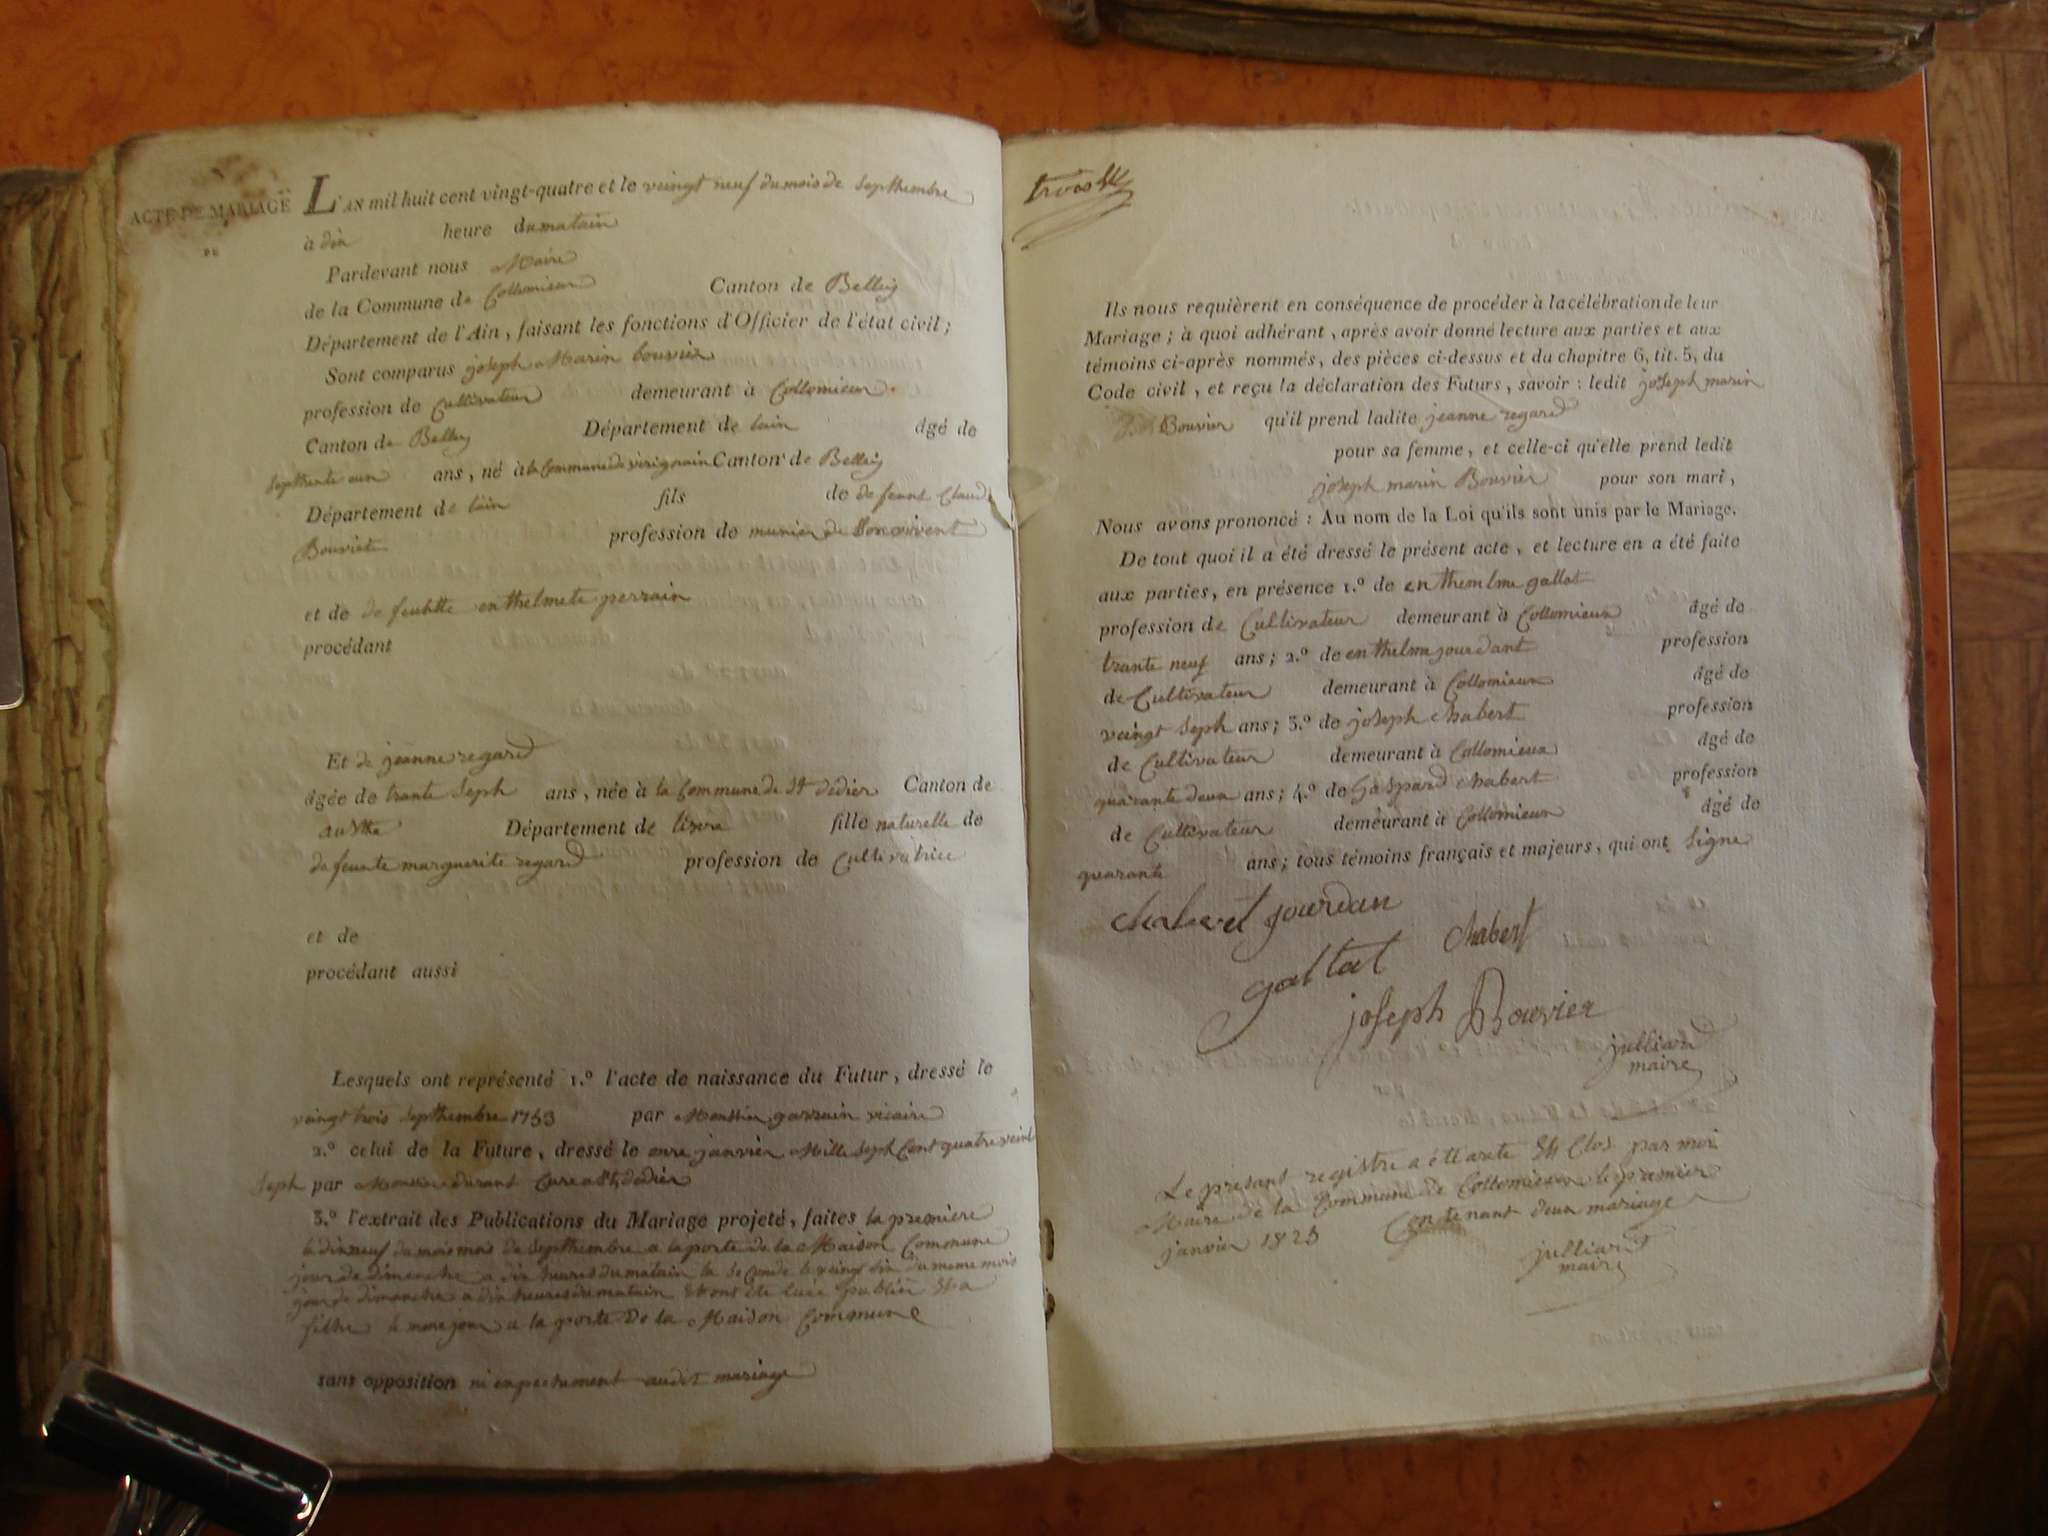 ACTE DE MARIAGE
DE
L'AN mil huit cent vingt-quatre et le veingt neuf du mois de septhembre
à dix heure du matain
Pardevant nous Maire
de la Commune de Collomieux Canton de Belley
Département de l'Ain, faisant les fonctions d'Officier de l'état civil;
Sont comparus joseph Marin bouvier
profession de Cultivateur demeurant à Collomieux
Canton de Belley Département de lain âgé de
septhente eun ans, né à la Commune de virignain Canton de Belley
Département de lain fils de defeunt Claude
Bouvier profession de munier de
et de de feuhtte enthelmete perrain
procédant
Et de jeanne regard
âgée de trante seph ans, née à la Commune de St dedier Canton de
Département de lisere fille naturelle de
defeunte marguerite regard profession de Cultivatrice
et de
procédant aussi
Lesquels ont représenté 1.º l'acte de naissance du Futur, dressé le
veingt trois septhembre 1753 par Monssin garrain vicaire
2.º celui de la Future, dressé le onze janvier Mille seph Cent quatre veint
seph par durant Cure a St dedier
3.º l'extrait des Publications du Mariage projeté, faites la premiere
le dixneuf du mois de septhembre a la porte de la Maison Commune
jour de dimanche a dix heures du matain la seconde le veingt six du meme mois
jour de dimanche a dix heures du matain
le meme jour a la porte De la Maison Commune
sans opposition ni enpechument audit mariage
trois
Ils nous requièrent en conséquence de procéder à la célébration de leur
Mariage; à quoi adhérant, après avoir donné lecture aux parties et aux
témoins ci-après nommés, des pièces ci-dessus et du chapitre 6, tit. 5, du
Code civil, et reçu la déclaration des Futurs, savoir: ledit joseph marin
Bouvier qu'il prend ladite jeanne regard
pour sa femme, et celle-ci qu'elle prend ledit
joseph marin Bouvier pour son mari,
Nous avons prononcé: Au nom de la Loi qu'ils sont unis par le Mariage.
De tout quoi il a été dressé le présent acte, et lecture en a été faite
aux parties, en présence 1.º de enthemlme gallat
profession de Cultivateur demeurant à Collomieux âgé de
trante neuf ans; 2.º de enthelme jourdant profession
de Cultivateur demeurant à Collomieux âgé de
veingt seph ans; 3.º de joseph chabert profession
de Cultivateur demeurant à Collomieux âgé de
quarante deux ans; 4.º de Gaspard chabert profession
de Cultivateur demeurant à Collomieux âgé de
quarante ans; tous témoins français et majeurs, qui ont signe
chabert jourdan
gallat chabert
joseph Bouvier
julliand
maire
Le présant registre a étté arete Et Clos par moi
Maire de la Commune de Collomieux le premier
janvier 1825 Contenant deux mariage
julliand
maire